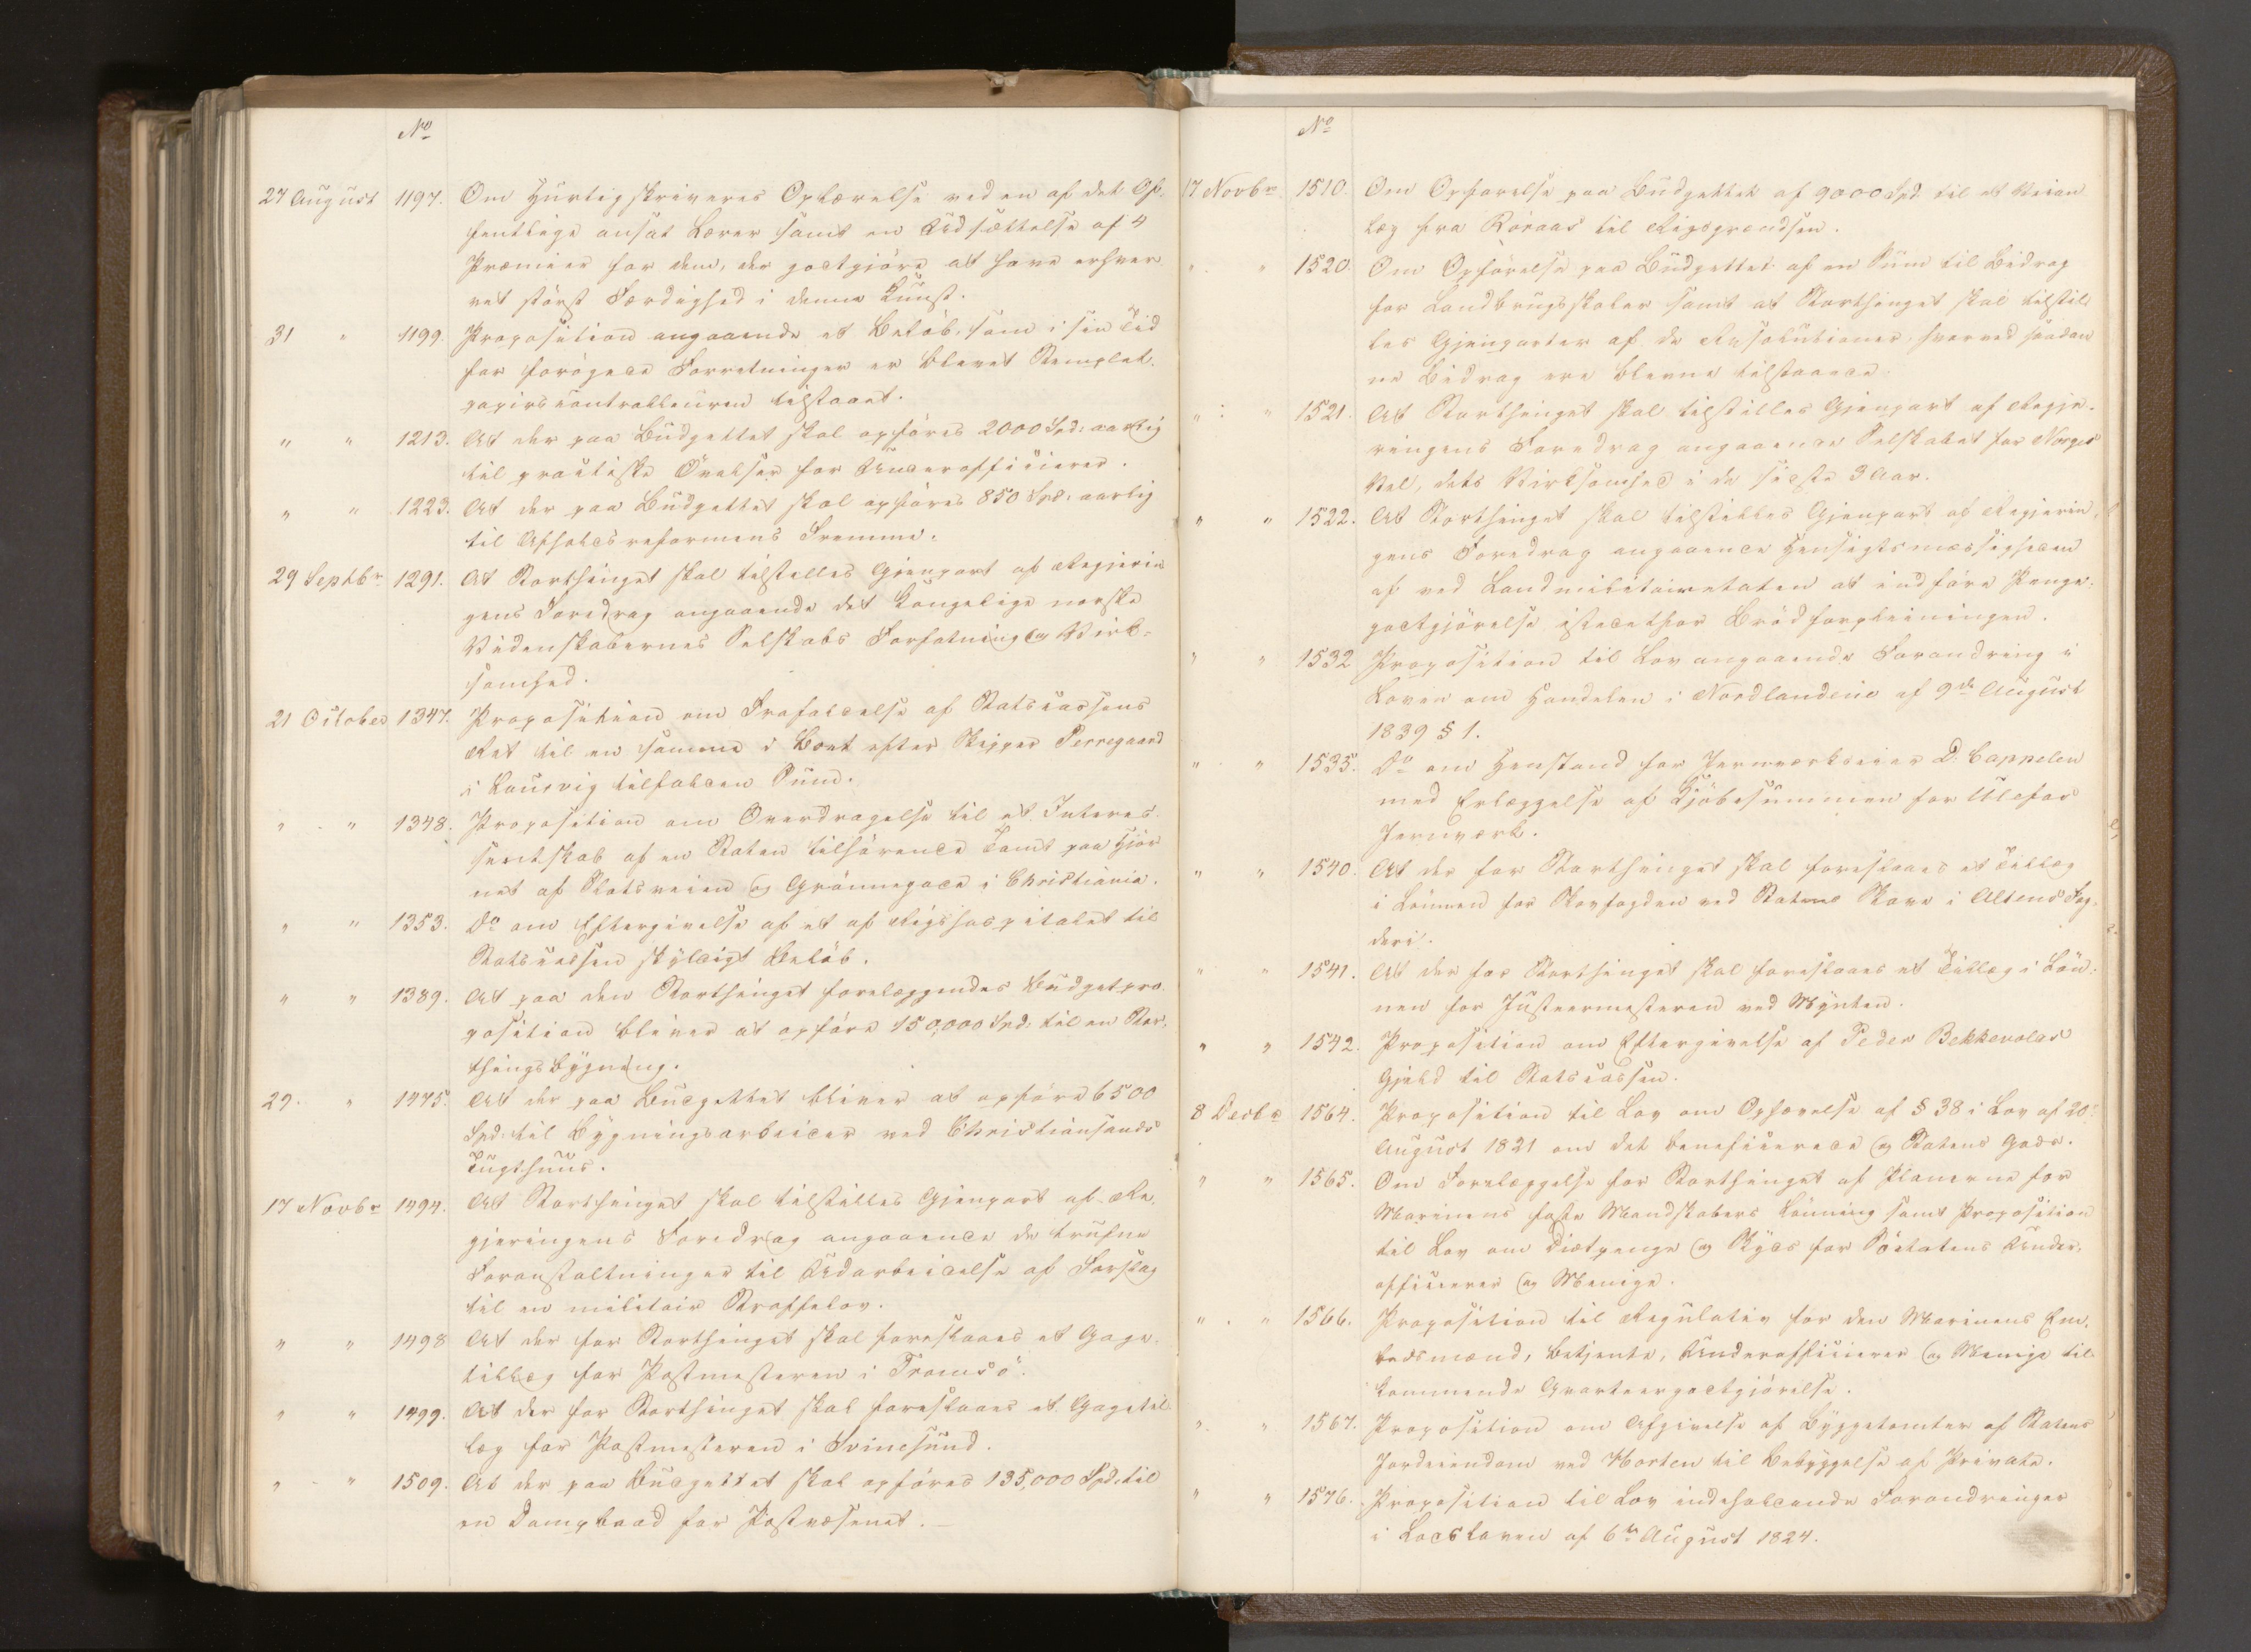 No
27 August 1197. Om Hurtigskriveres Oplærelse ved en af det Of-
fentlige ansat Lærer samt en Udsættelse af 4
Præmier for dem, der godtgjøre at have erhver
vet størst Færdighed i denne Kunst.
31 " 1199. Proposition angaaende et Beløb, som i sin Tid
for forøgede Forretninger er blevet Stemplet-
papirscontrolleuren tilstaaet.
" " 1213. At der paa Budgettet skal opføres 2000 Spd: aarlig
til practiske Øvelser for Underofficierer.
" " 1223. At der paa Budgettet skal opføres 850 Spd: aarlig
til Afholdsreformens Fremme.
29 Septbr 1291. At Storthinget skal tilstilles Gjenpart af Regjerin
gens Foredrag angaaende det kongelige norske
Videnskabernes Selskabs Forfatning og Virk-
somhed.
21 October 1347. Proposition om Frafaldelse af Statscassens
Ret til en samme i Boet efter Skipper Perregaard
i Laurvig tilfalden Sum.
" " 1348. Proposition om Overdragelse til et Interes-
sentskab af en Staten tilhørende Tomt paa Hjør
net af Slotsveien og Grønnegade i Christiania.
" " 1353. Do om Eftergivelse af et af Rigshospitalet til
Statscassen skyldigt Beløb.
" " 1389. At paa den Storthinget forelæggendes Budgetpro-
position bliver at opføre 150,000 Spd: til en Stor-
thingsbygning.
29. " 1475. At der paa Budgettet bliver at opføre 6500
Spd: til Bygningsarbeider ved Christiansands
Tugthuus.
17 Novbr 1494. At Storthinget skal tilstilles Gjenpart af Re-
gjeringens Foredrag angaaende de trufne
Foranstaltninger til Udarbeidelse af Forslag
til en militair Straffelov.
" " 1498 At der for Storthinget skal foreslaaes et Gage-
tillæg for Postmesteren i Tromsö.
" " 1499. At der for Storthinget skal foreslaaes et Gagetil-
læg for Postmesteren i Svinesund.
" " 1509. At der paa Budgettet skal opføres 135,000 Spd: til
en Dampbaad for Postvæsenet.
No
17 Novbr 1510. Om Opførelse paa Budgettet af 9000 Spd. til et Veian-
læg fra Röraas til Rigsgrændsen.
" " 1520. Om Opførelse paa Budgettet af en Sum til Bidrag
for Landbrugsskoler samt at Storthinget skal tilstil
les Gjenparter af de Resolutioner, hvorved saadan
ne Bidrag ere blevne tilstaaede.
" " 1521. At Storthinget skal tilstilles Gjenpart af Regje-
ringens Foredrag angaaende Selskabet for Norges
Vel, dets Virksomhed i de sidste 3 Aar.
" " 1522. At Storthinget skal tilstilles Gjenpart af Regjerin-
gens Foredrag angaaende Hensigtsmæssigheden
af ved Landmilitairetaten at indføre Penge-
godtgjörelse istedetfor Brödforpleiningen.
" " 1532 Proposition til Lov angaaende Forandring i
Loven om Handelen i Nordlandene af 9de August
1839 § 1.
" " 1535. Do om Henstand for Jernværkseier D. Cappelen
med Erlæggelse af Kjöbesummen for Ulefos
Jernværk.
" " 1540. At der for Storthinget skal foreslaaes et Tillæg
i Lønnen for Skovfogden ved Statens Skove i Altens Fog-
deri.
" " 1541. At der for Storthinget skal foreslaaes et Tillæg i Løn-
nen for Justeermesteren ved Mynten.
" " 1542. Proposition om Eftergivelse af Peder Bekkevolds
Gjeld til Statscassen.
8 Decbr 1564. Proposition til Lov om Ophævelse af § 38 i Lov af 20de
August 1821 om det beneficerede og Statens Gods.
" " 1565. Om Forelæggelse for Storthinget af Planerne for
Marinens faste Mandskabers Lønning samt Proposition
til Lov om Diætpenge og Skyds for Söetatens Under-
officierer og Menige.
" " 1566. Proposition til Regulativ for den Marinens Em-
bedsmænd, Betjente, Underofficierer og Menige til
kommende Qvarteergodtgjörelse.
" " 1567. Proposition om Afgivelse af Byggetomter af Statens
Jordeiendom ved Horten til Bebyggelse af Private.
" " 1576. Proposition til Lov indeholdende Forandringer
i Lodsloven af 6te August 1824.